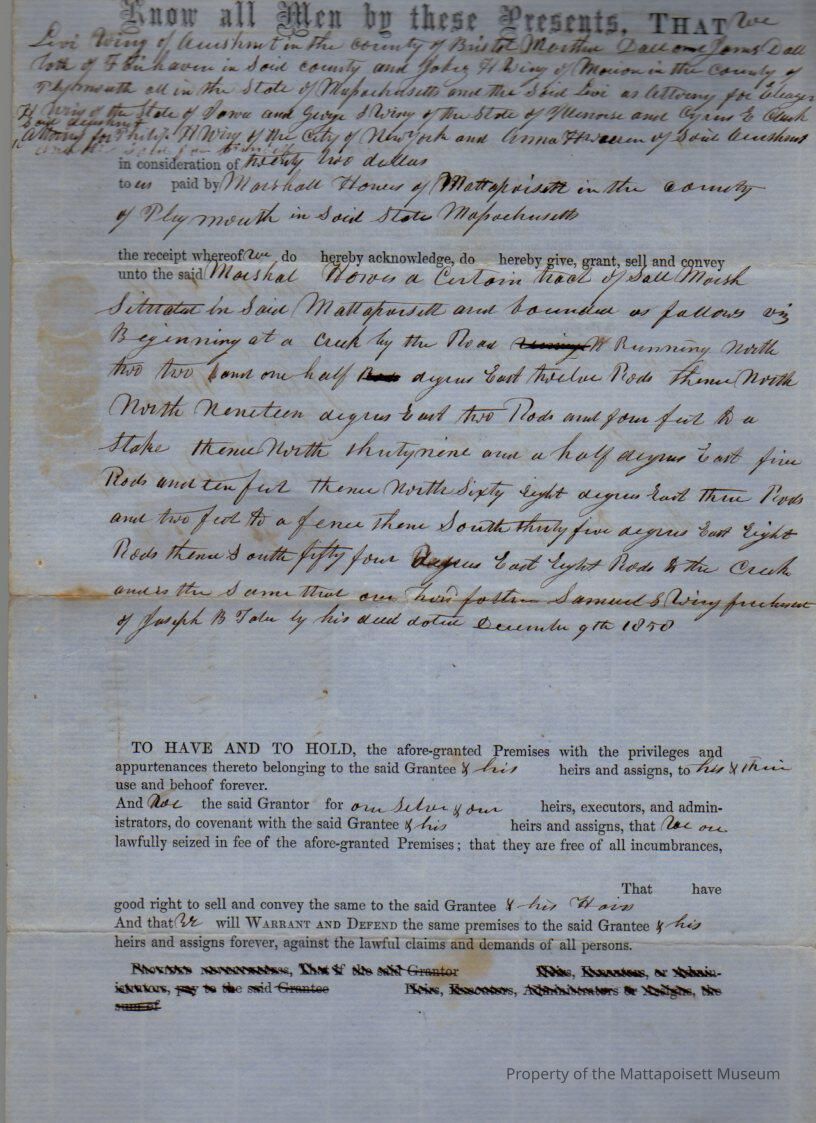 Know all Men by these Presents, THAT We
Levi Wing of Acushnet in the County of Bristol Martha Dall and James Dall
both of Fairhaven in Said county and Jabez H Wing of Marion in the County of
Plymouth all in the State of Massachusetts and the Said Levi as Attorny for Eleazer
H Wing of the State of Iowa and George S Wing of the State of and Cyrus E Clark
Attorny for Philip H Wing of the City of New York and Anna H of Said Acushnet
in consideration of twenty two dollars
to us paid by Marshall Howes of Mattapoisett in the County
of Plymouth in Said State Massachusetts
the receipt whereof We do hereby acknowledge, do hereby give, grant, sell and convey
unto the said Marshal Howes a Certain tract of Salt Marsh
Situated in Said Mattapoisett and bounded as follows viz
Beginning at a Creek by the Road Running North
two two and one half degrees East twelve Rods thence North
North Nineteen degrees East two Rods and four feet to a
Stake thence North thirty nine and a half degrees East five
Rods and ten feet thence North Sixty Eight degrees East three Rods
and two feet to a fence thence South thirty five degrees East Eight
Rods thence South fifty four degrees East Eight Rods to the Creek
and is the Same that our Samuel S Wing purchased
of Joseph B Taber by his deed dated December 9th 1850
TO HAVE AND TO HOLD, the afore-granted Premises with the privileges and
appurtenances thereto belonging to the said Grantee & his heirs and assigns, to his & their
use and behoof forever.
And We the said Grantor for our Selves & our heirs, executors, and admin-
istrators, do covenant with the said Grantee & his heirs and assigns, that We are
lawfully seized in fee of the afore-granted Premises; that they are free of all incumbrances,
That have
good right to sell and convey the same to the said Grantee & his Heirs
And that We will WARRANT AND DEFEND the same premises to the said Grantee & his
heirs and assigns forever, against the lawful claims and demands of all persons.
That if the said Grantor Heirs, Executors, or Admin-
istrators, pay to the said Grantee Heirs, Executors, Administrators or Assigns, the
sum of
Property of the Mattapoisett Museum